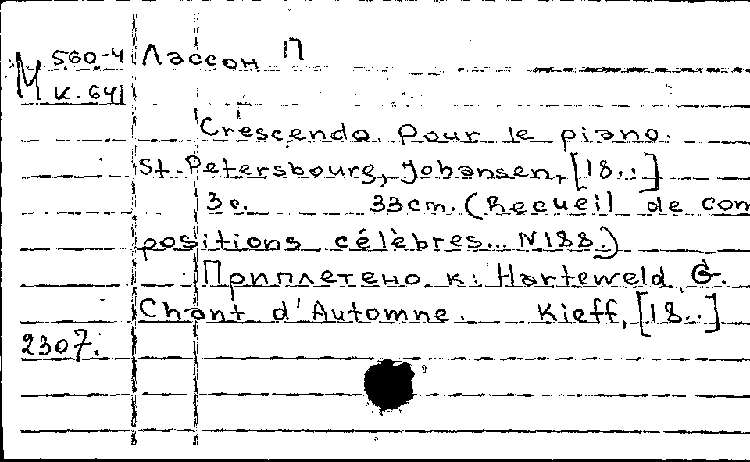 М 560-4 Лассон П
к. 641
Crescendo. Pour le piano.
St. Petersbourg, Johansen, [18..]
3 с. 33 cm. (Recueil de com
positions célèbres... N 188.)
Приплетено к: Harteweld, G.
Chant d'Automne. Kieff, [18..]
2307.